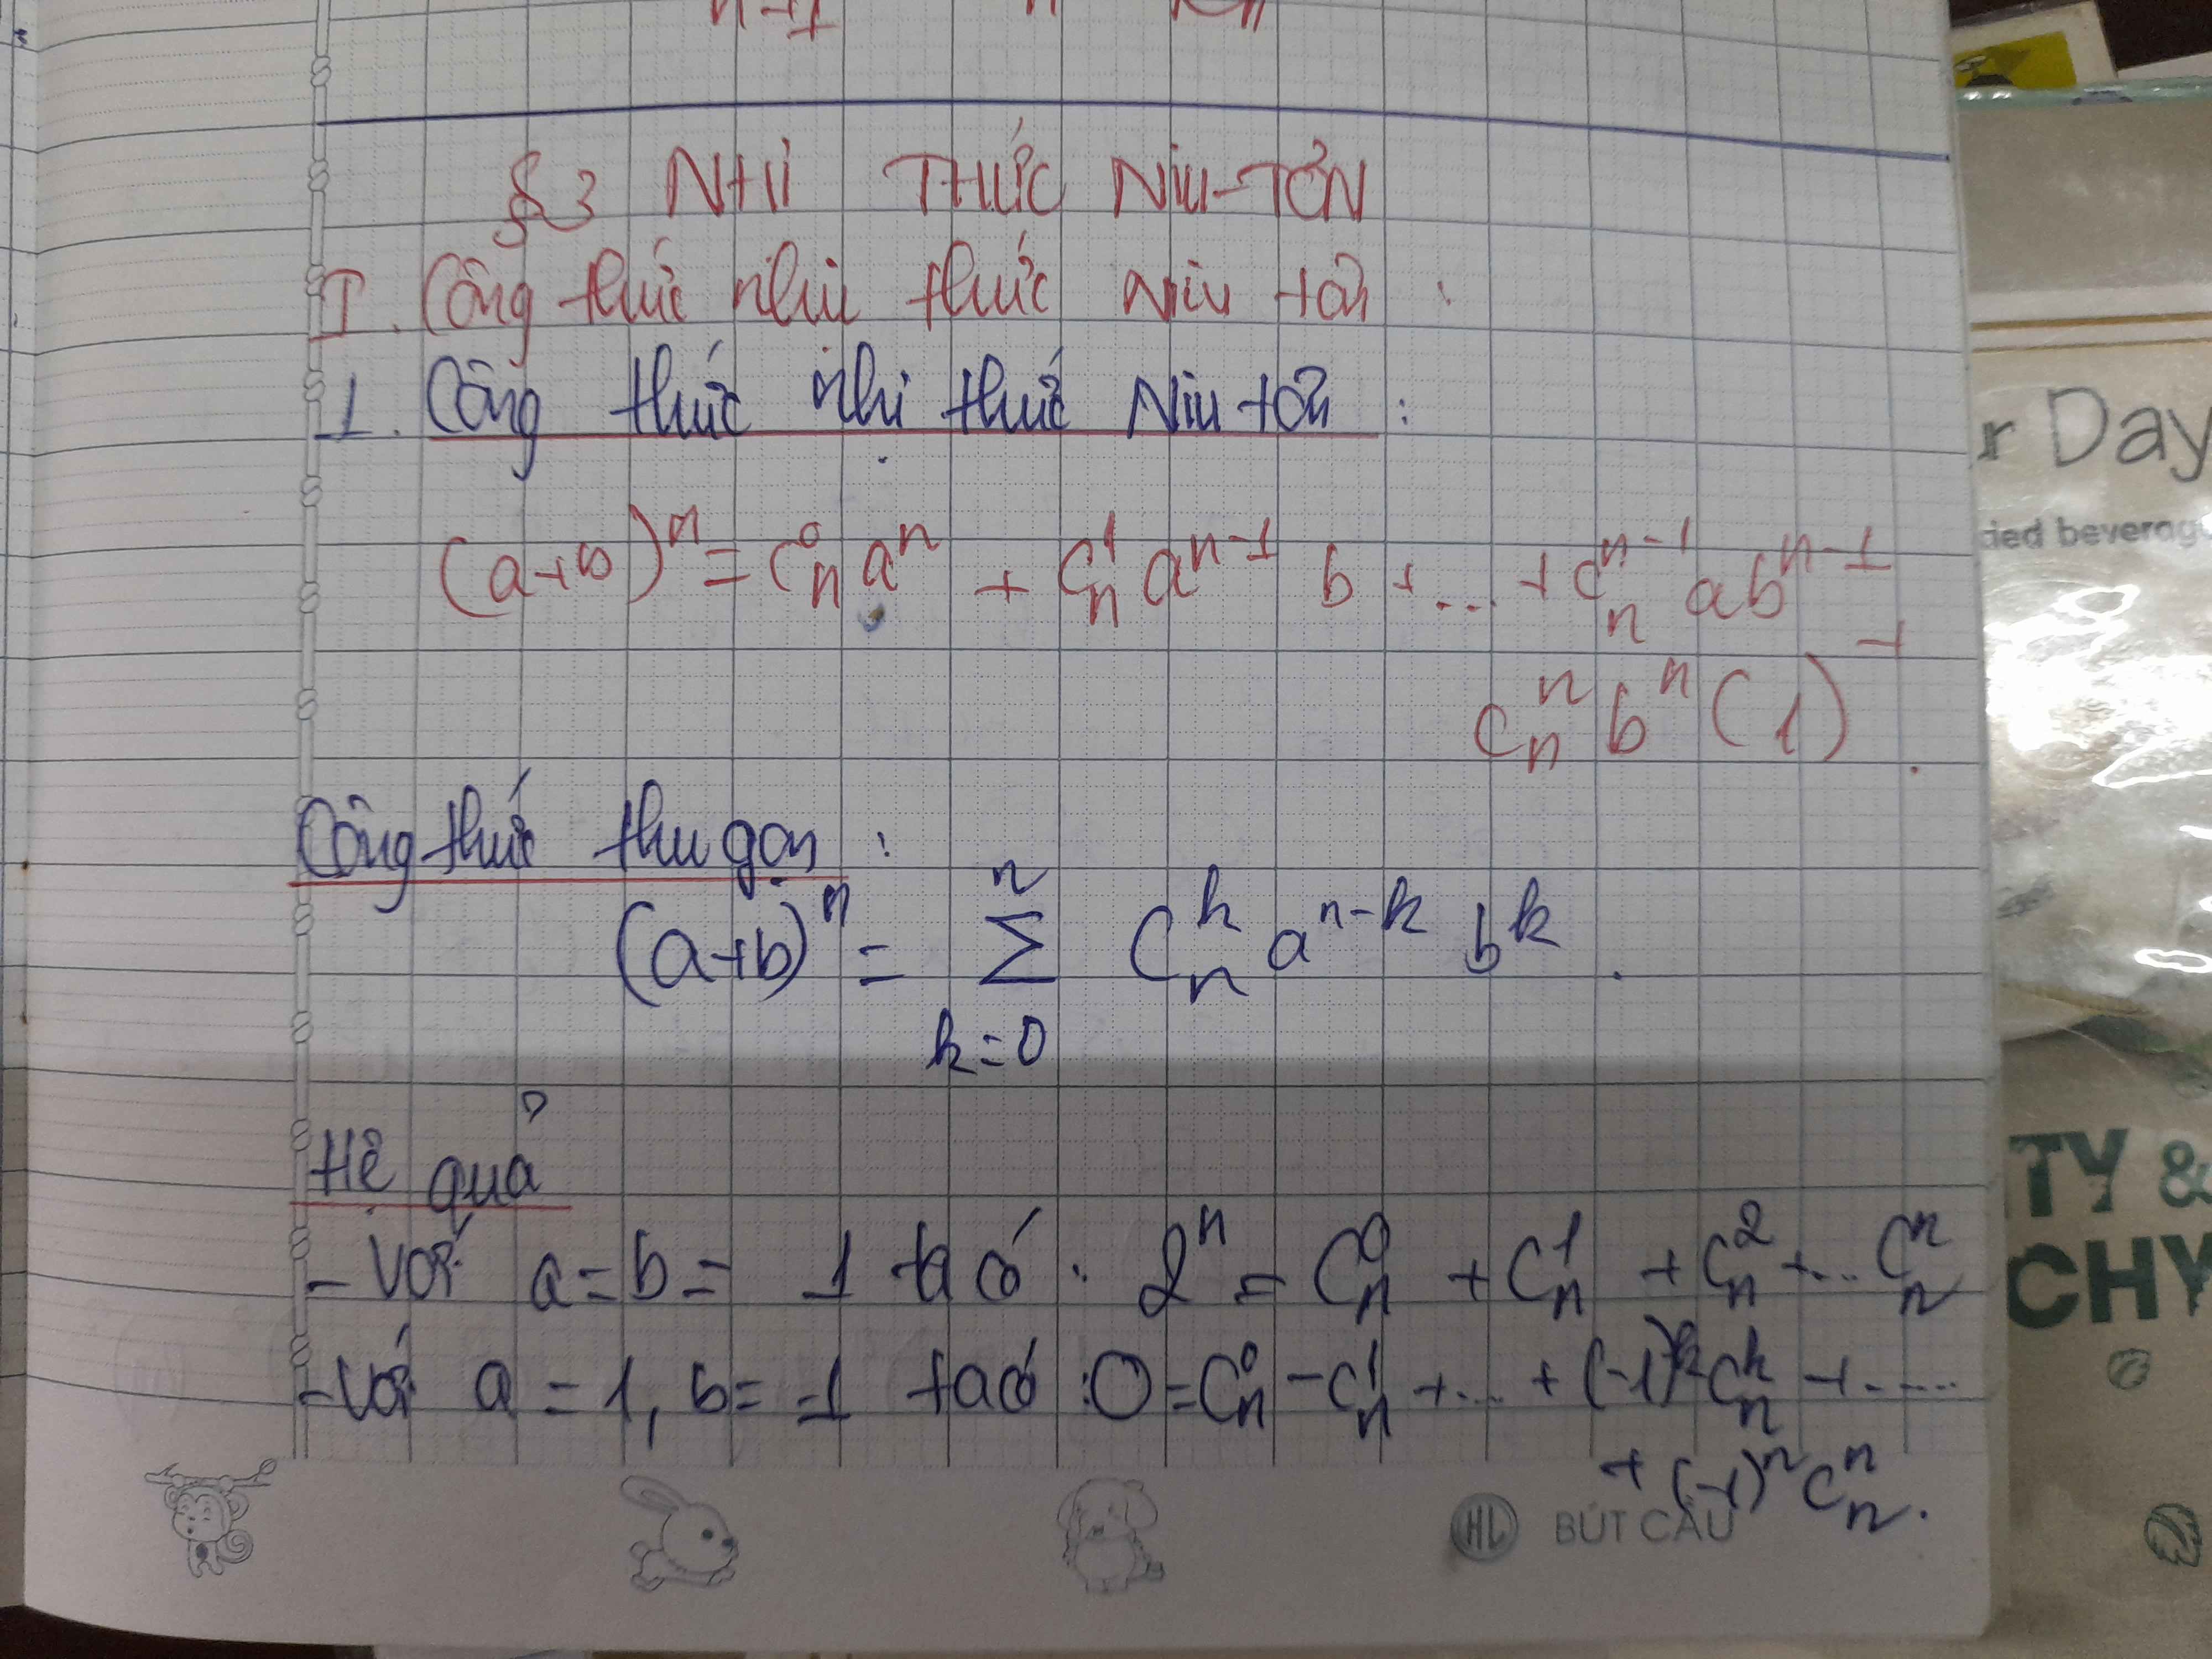 n+1 n
§3 NHỊ THỨC NIU-TƠN
I. Công thức nhị thức Niu tơn :
1. Công thức nhị thức Niu-tơn :
(a+b)^n = C_n^0 a^n + C_n^1 a^{n-1} b + ... + C_n^{n-1} a b^{n-1} +
C_n^n b^n (1).
Công thức thu gọn :
(a+b)^n = \sum_{k=0}^{n} C_n^k a^{n-k} b^k .
Hệ quả
- Với a = b = 1 ta có : 2^n = C_n^0 + C_n^1 + C_n^2 + ... C_n^n
- Với a = 1, b = -1 ta có : 0 = C_n^0 - C_n^1 + ... + (-1)^k C_n^k + .....
+ (-1)^n C_n^n .
HL BÚT CÂU
r Day
ied beverag
TY &
CHY